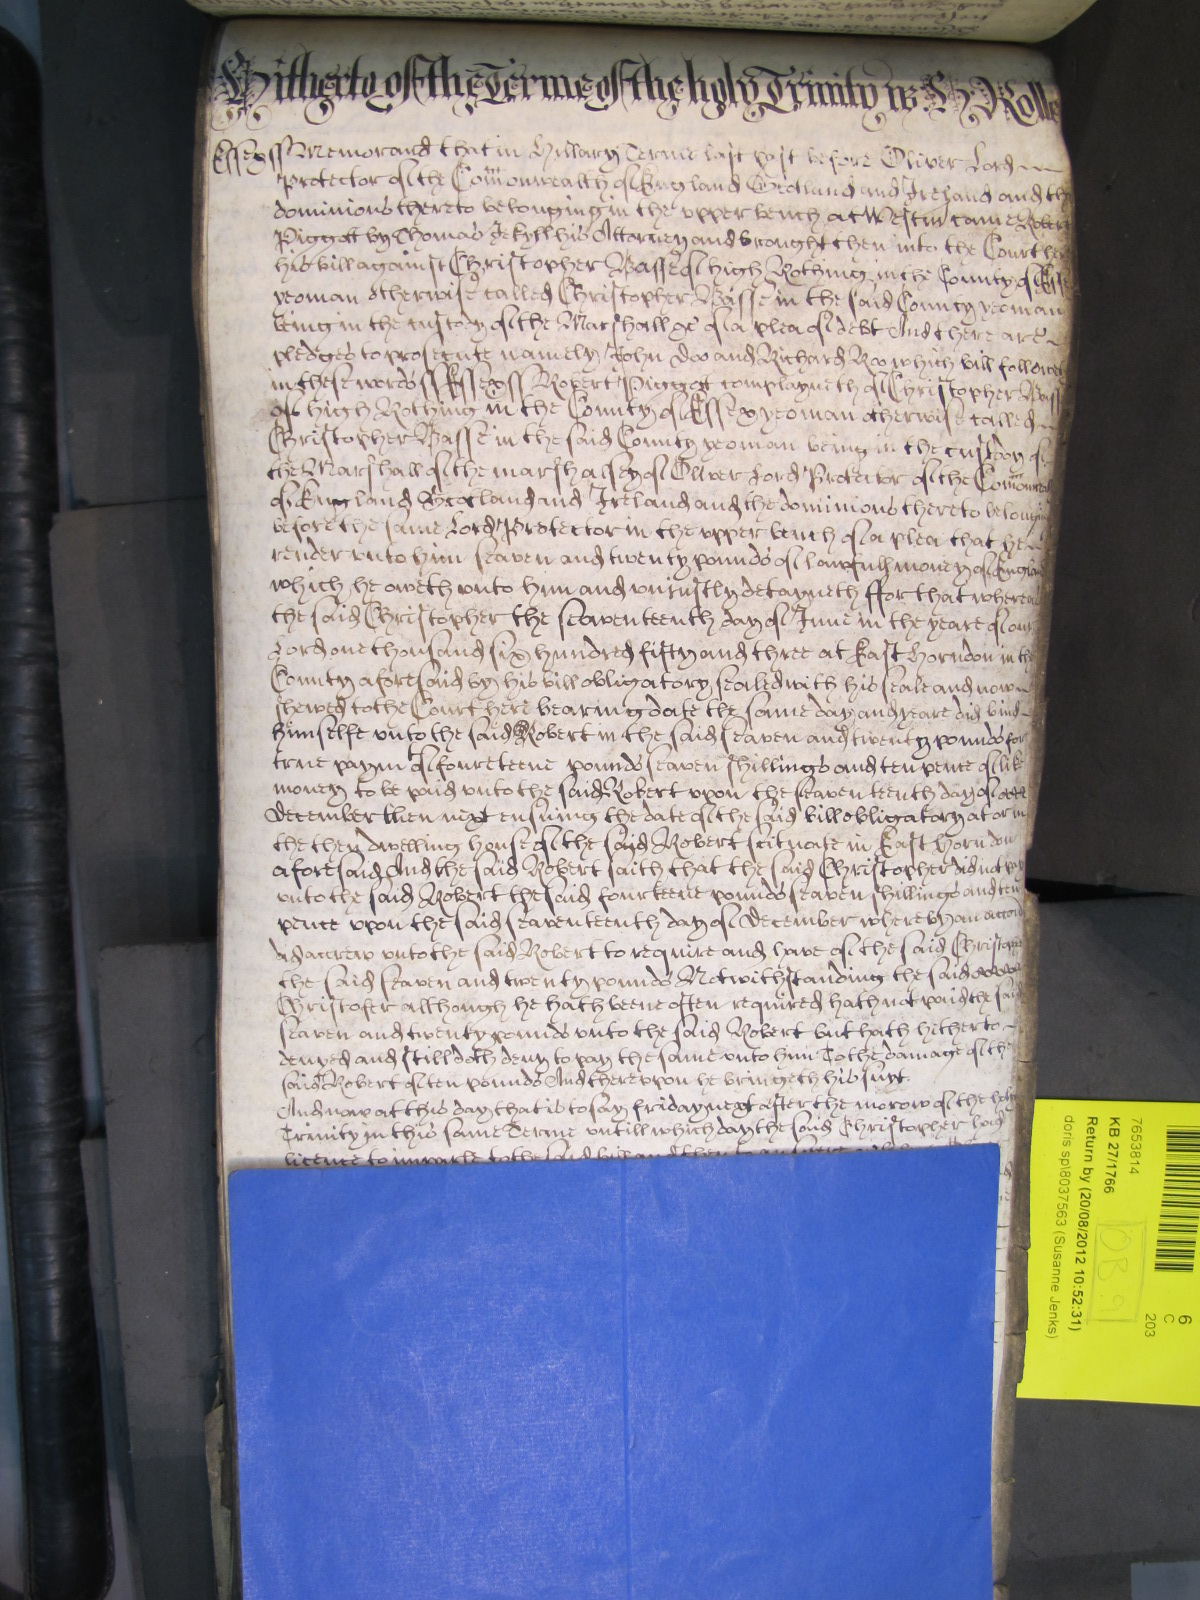 Hitherto of the Terme of the holy Trinity is H Rolle
Essex ss Memorand that in Hillary Terme last past before Oliver Lord
Protector of the Comonwealth of England Scotland and Ireland and the
dominions thereto belonging in the upper bench at Westm came Robert
Piggot by Thomas Jekyll his Attorney and brought then into the Court here
his bill against Christopher Basse of high Rothing in the County of Essex
yeoman otherwise called Christopher Basse in the said County yeoman
being in the custody of the Marshall &c of a plea of debt And there are
pledges to prosecute namely John Doo and Richard Roo which bill followes
in these words ss Essex ss Robert Piggot complayneth of Christopher Basse
of high Rothing in the County of Essex yeoman otherwise called
Christopher Basse in the said County yeoman being in the custody of
the Marshall of the marshalsey of Oliver Lord Protector of the Comonwea
of England Scotland and Ireland and the dominions thereto belonging
before the same Lord Protector in the upper bench of a plea that he
render unto him seaven and twenty pounds of lawfull money of England
which he oweth unto him and uniustly detayneth ffor that whereas
the said Christopher the seaventeenth day of June in the yeare of our
Lord one thousand six hundred fifty and three at East Horndon in the
County aforesaid by his bill obligatory sealed with his seale and now
shewed to the Court here bearing date the same day and yeare did bind
himselfe unto the said Robert in the said seaven and twenty pounds for
true paym of fourteene pounds seaven shillings and ten pence of like
money to be paid unto the said Robert upon the seaventeenth day of
December then next ensuing the date of the said bill obligatory at or in
the then dwelling house of the said Robert scituate in East Horndon
aforesaid And the said Robert saith that the said Christopher did not pay
unto the said Robert the said fourteene pounds seaven shillings and ten
pence upon the said seaventeenth day of December whereby an accon
did accrew unto the said Robert to require and have of the said Christopher
the said seaven and twenty pounds Notwithstanding the said
Christofer although he hath beene often required hath not paid the said
seaven and twenty pounds unto the said Robert but hath hitherto
denyed and still doth deny to pay the same unto him To the damage of the
said Robert of ten pounds And thereupon he bringeth his suyt.
And now at this day that is to say friday next after the morow of the holy
Trinity in this same Terme untill which day the said Christopher had
licence to imparle to the said bill and then to answere
7653814
KB 27/1766
Return by (20/08/2012 10:52:31)
doris spl8037563 (Susanne Jenks)
6
C
203